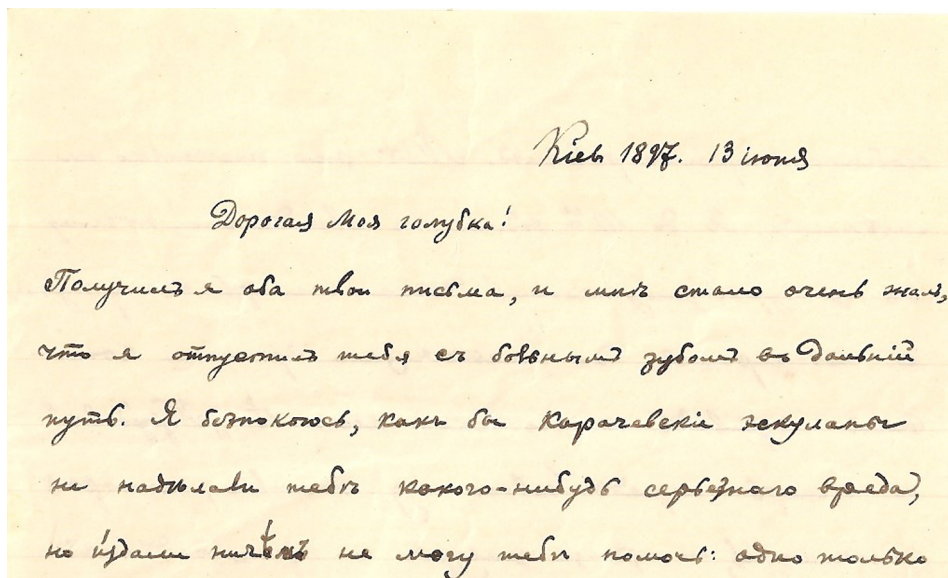 Кіевъ 1897. 13 іюня
Дорогая моя голубка!
Получилъ я оба твои письма, и мнѣ стало очень жаль,
что я отпустилъ тебя съ больнымъ зубомъ въ дальній
путь. Я безпокоюсь, какъ бы Карачевскіе эскулапы
не надѣлали тебѣ какого-нибудь серьезнаго вреда,
но издали ничѣмъ не могу тебѣ помочь: одно только